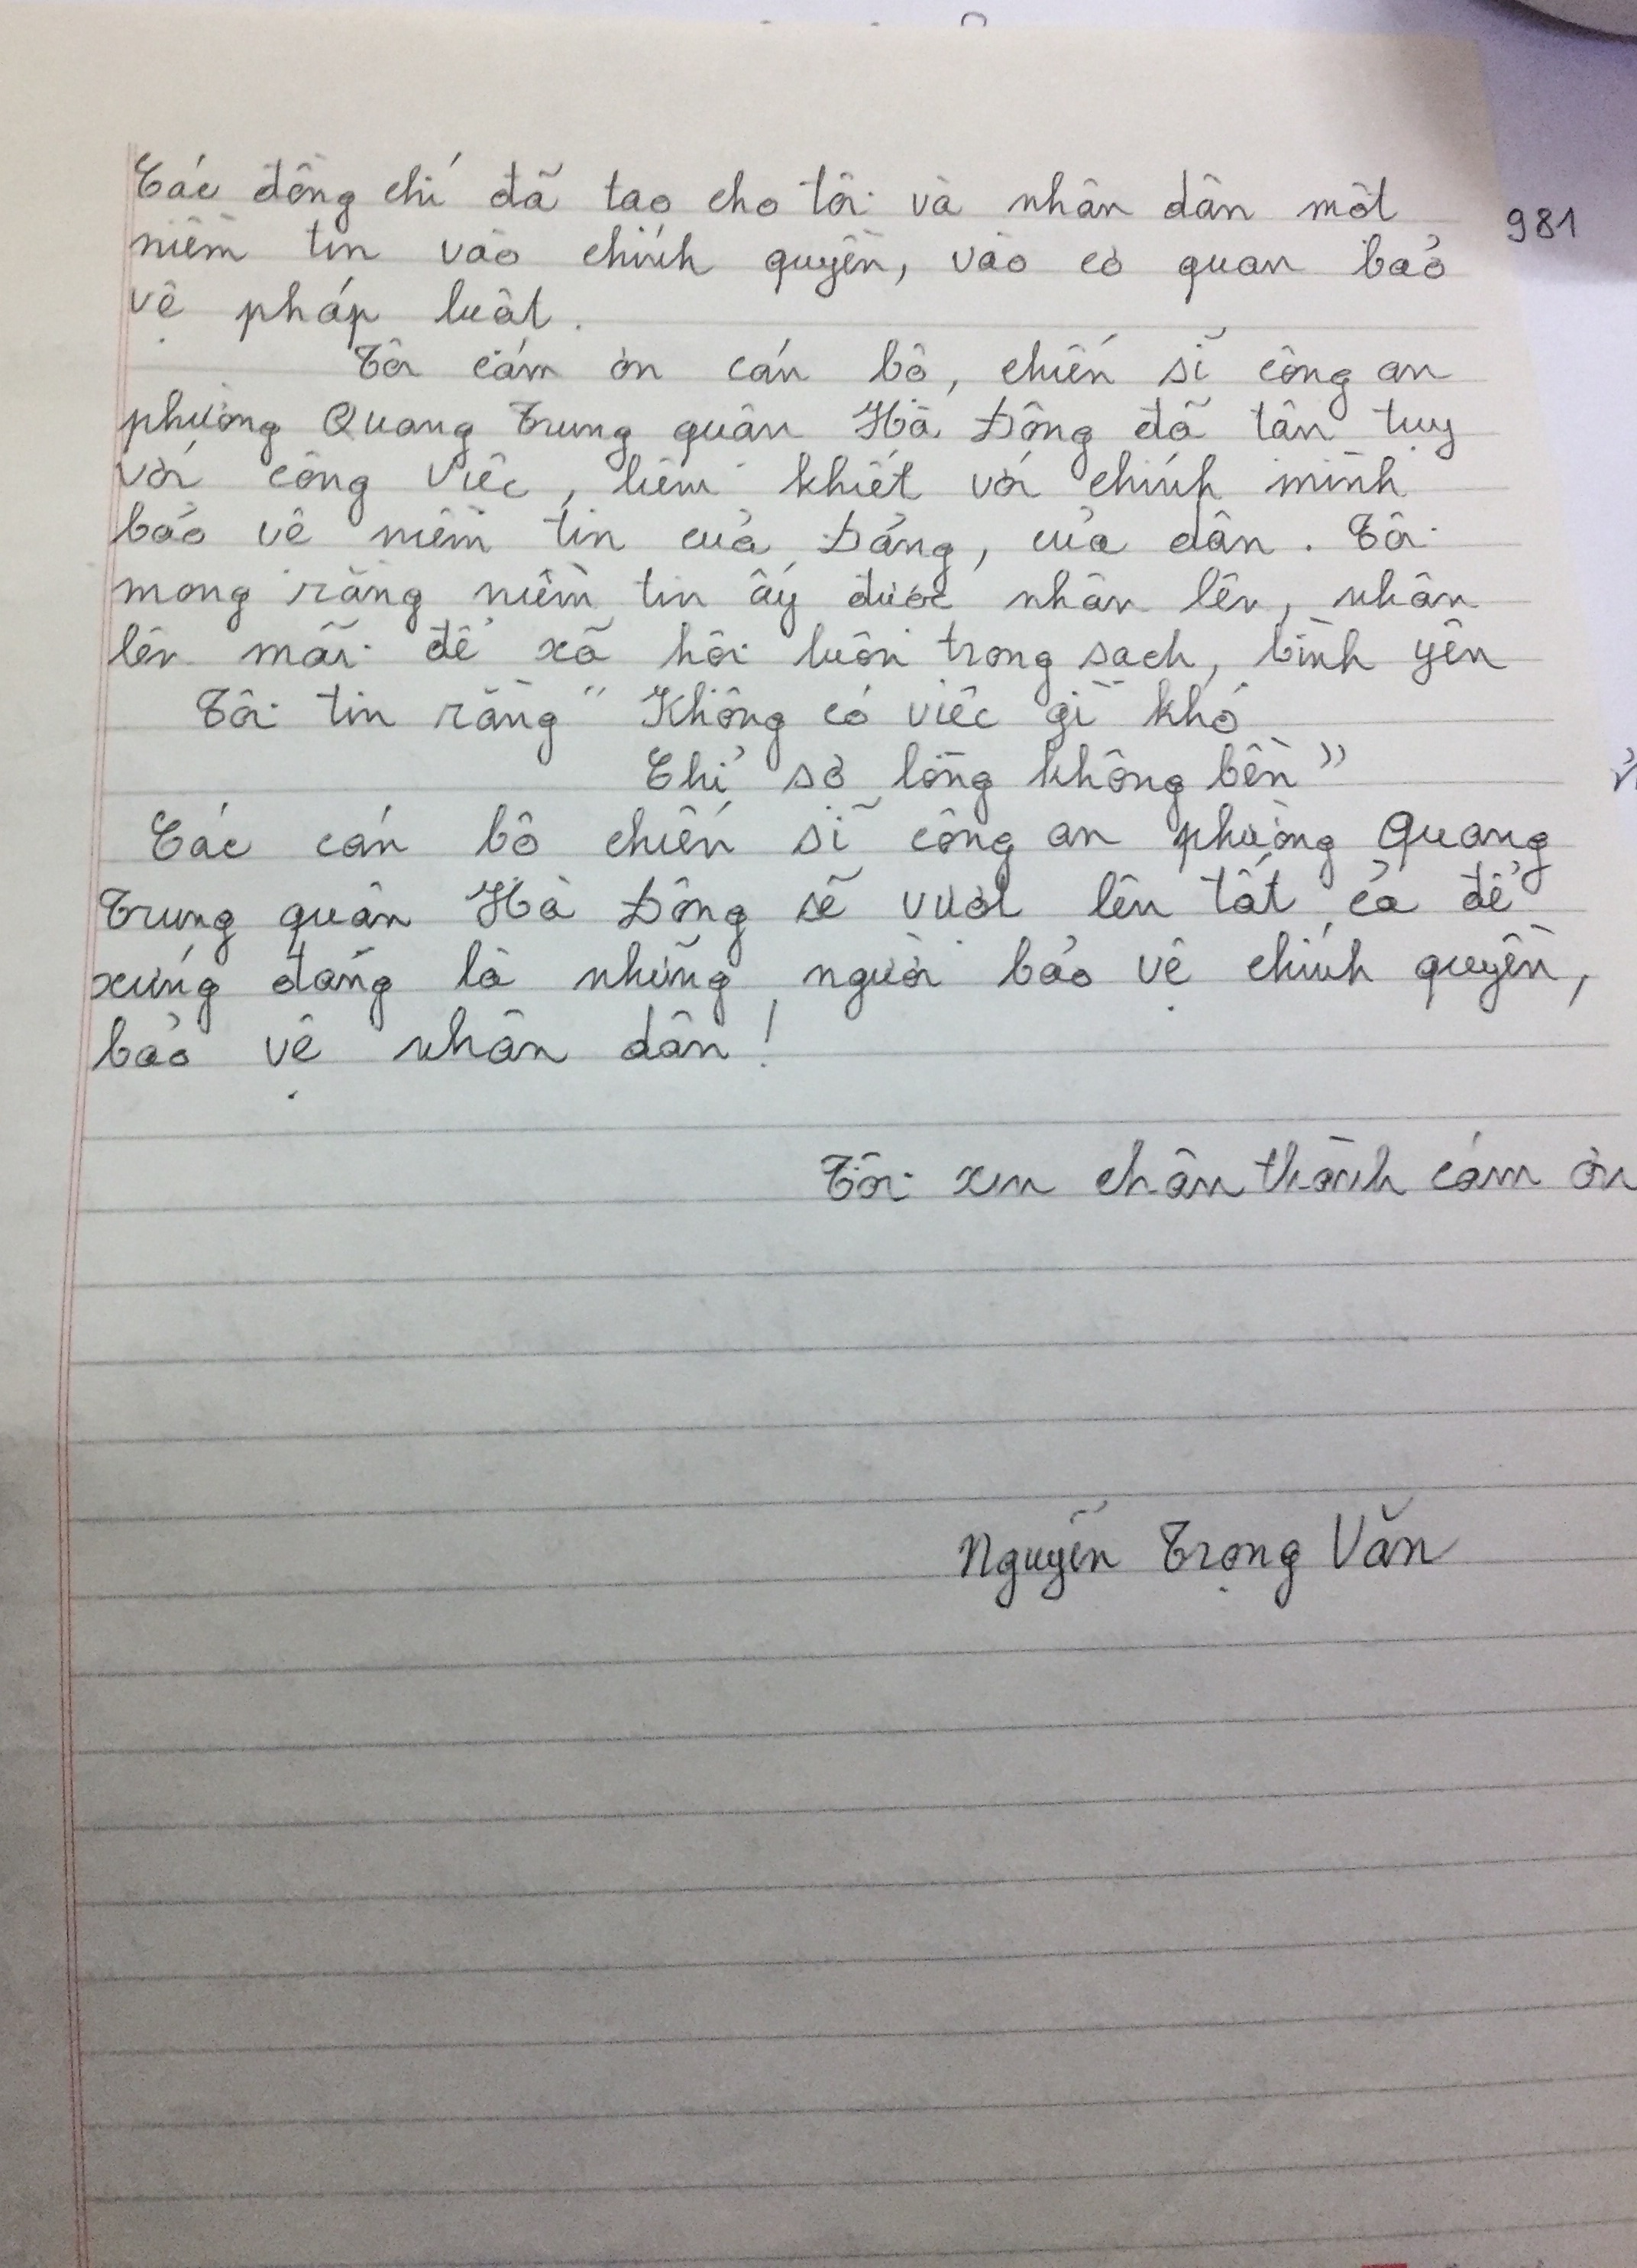 Các đồng chí đã tạo cho tôi và nhân dân một
981
niềm tin vào chính quyền, vào cơ quan bảo
vệ pháp luật.
Tôi cám ơn cán bộ, chiến sĩ công an
phường Quang Trung quận Hà Đông đã tận tụy
với công việc, liêm khiết với chính mình
bảo vệ niềm tin của Đảng, của dân. Tôi
mong rằng niềm tin ấy được nhân lên, nhân
lên mãi để xã hội luôn trong sạch, bình yên
Tôi tin rằng "Không có việc gì khó
Chỉ sợ lòng không bền"
Các cán bộ chiến sĩ công an phường Quang
Trung quận Hà Đông sẽ vượt lên tất cả để
xứng đáng là những người bảo vệ chính quyền,
bảo vệ nhân dân!
Tôi xin chân thành cám ơn
Nguyễn Trọng Văn